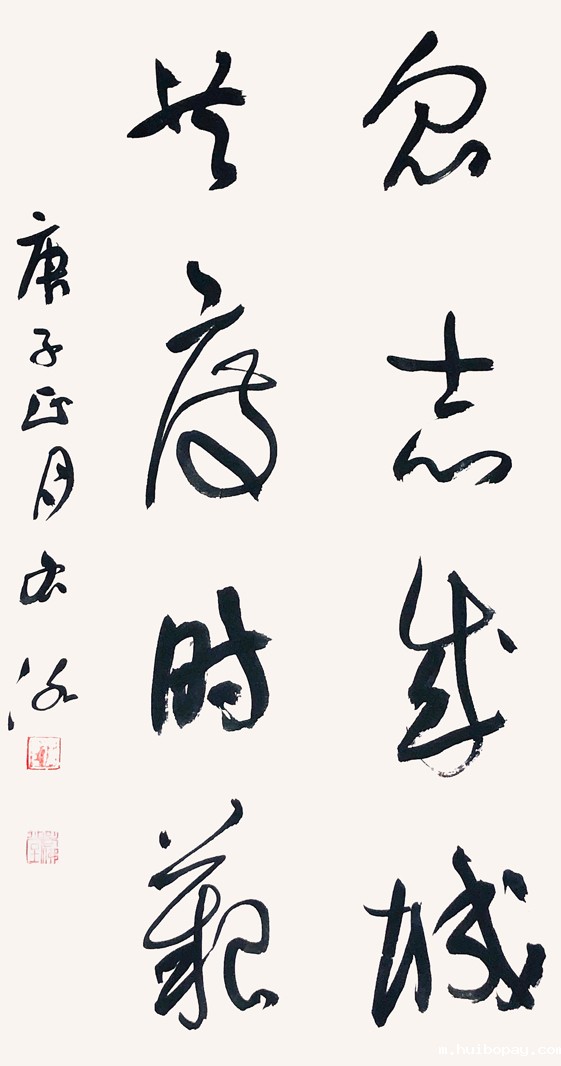 众志成城
共度时艰
庚子正月
m.huibopay.com